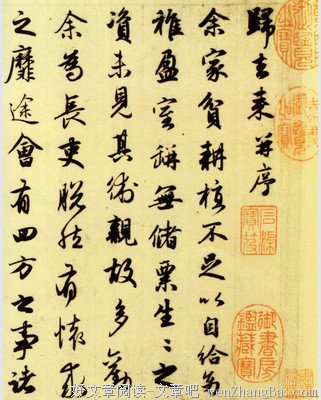 歸去来并序
余家貧耕植不足以自給幼
稚盈室缾無儲粟生〻之
資未見其術親故多勸
余為長吏脫然有懷求
之靡途會有四方之事諸
石渠寶笈
御書房鑑藏寶
好文章阅读-文章吧 wenZhangBa.com